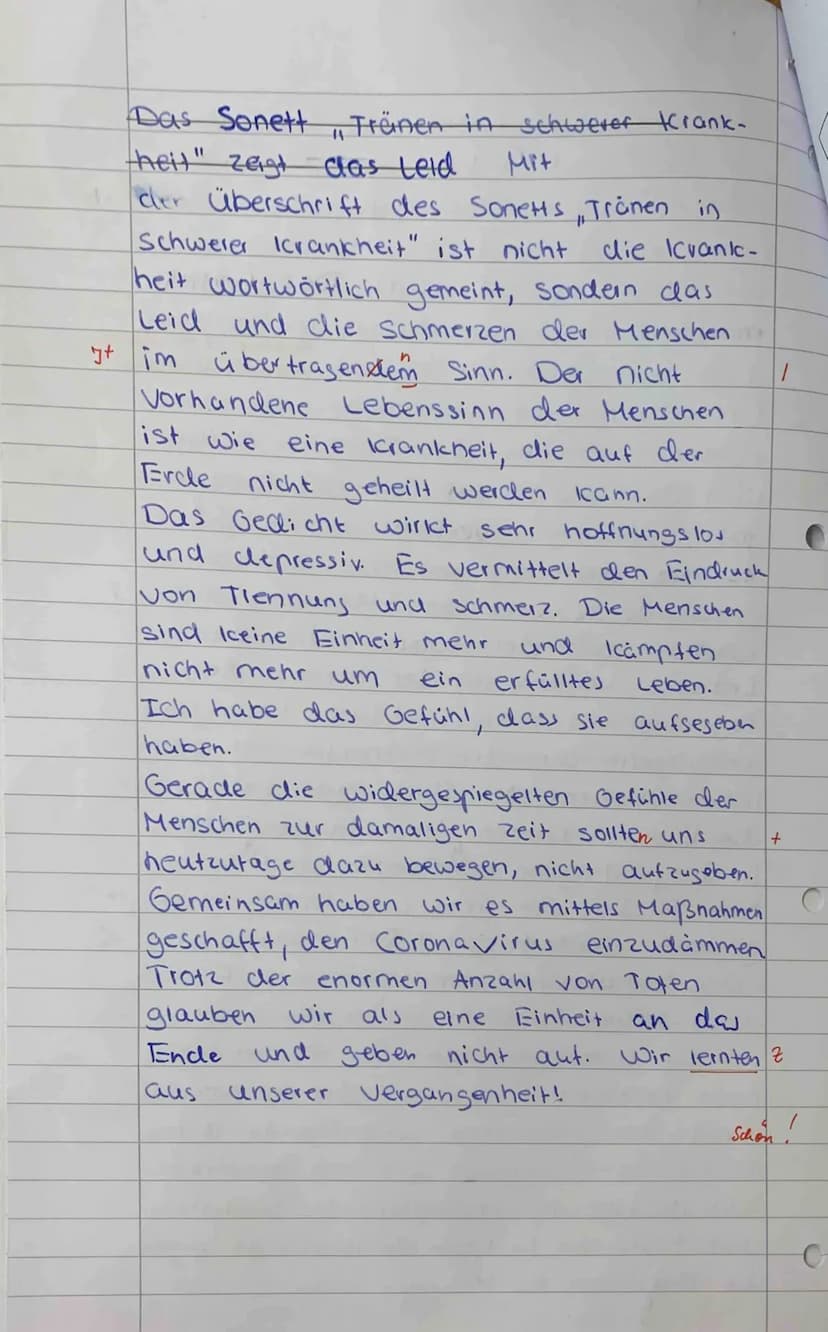 Das Sonett „Tränen in schwerer Krank-
heit" zeigt das Leid Mit
der Überschrift des Sonetts „Tränen in
schwerer Krankheit" ist nicht die Krank-
heit wortwörtlich gemeint, sondern das
Leid und die Schmerzen der Menschen
im übertragenden Sinn. Der nicht /
n
vorhandene Lebenssinn der Menschen
ist wie eine Krankheit, die auf der
Erde nicht geheilt werden kann.
Das Gedicht wirkt sehr hoffnungslos
und depressiv. Es vermittelt den Eindruck
von Trennung und Schmerz. Die Menschen
sind keine Einheit mehr und kämpfen
nicht mehr um ein erfülltes Leben.
Ich habe das Gefühl, dass sie aufgegeben
haben.
Gerade die widergespiegelten Gefühle der
Menschen zur damaligen Zeit sollten uns +
heutzutage dazu bewegen, nicht aufzugeben.
Gemeinsam haben wir es mittels Maßnahmen
geschafft, den Coronavirus einzudämmen
Trotz der enormen Anzahl von Toten
glauben wir als eine Einheit an das
Ende und geben nicht auf. Wir lernten Z
aus unserer Vergangenheit!
Schön!